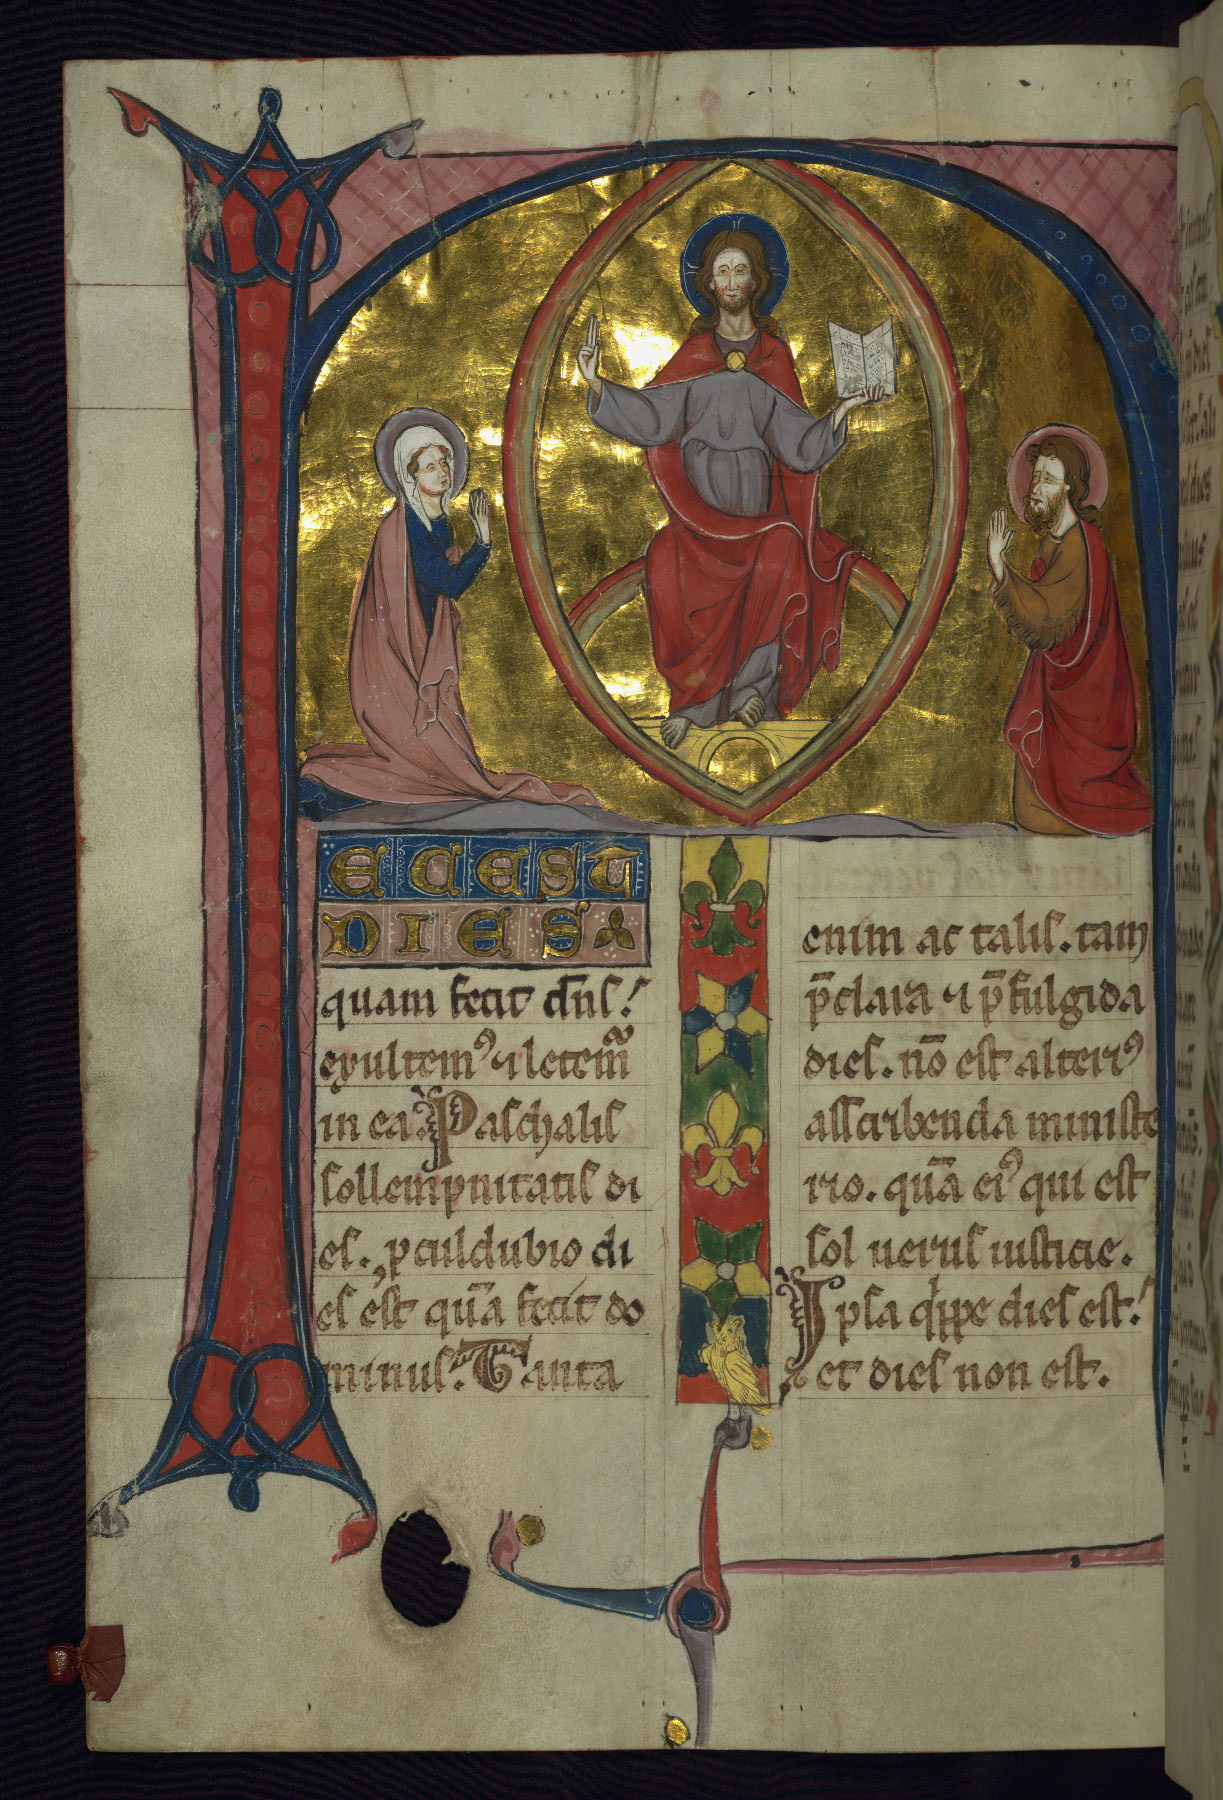 ECEST
DIES
quam fecit dn̄s!
exultemꝰ ⁊ letem̃
in ea. Paschalis
sollempnitatis di
es. ꝓculdubio di
es est quā fecit do
minus. Tanta
enim ac talis. tam
p̄clara ⁊ p̄fulgida
dies. nō est alteriꝰ
asscribenda ministe
rio. quā eiꝰ qui est
sol uerus iusticie.
Ipsa qͥppe dies est!
et dies non est.